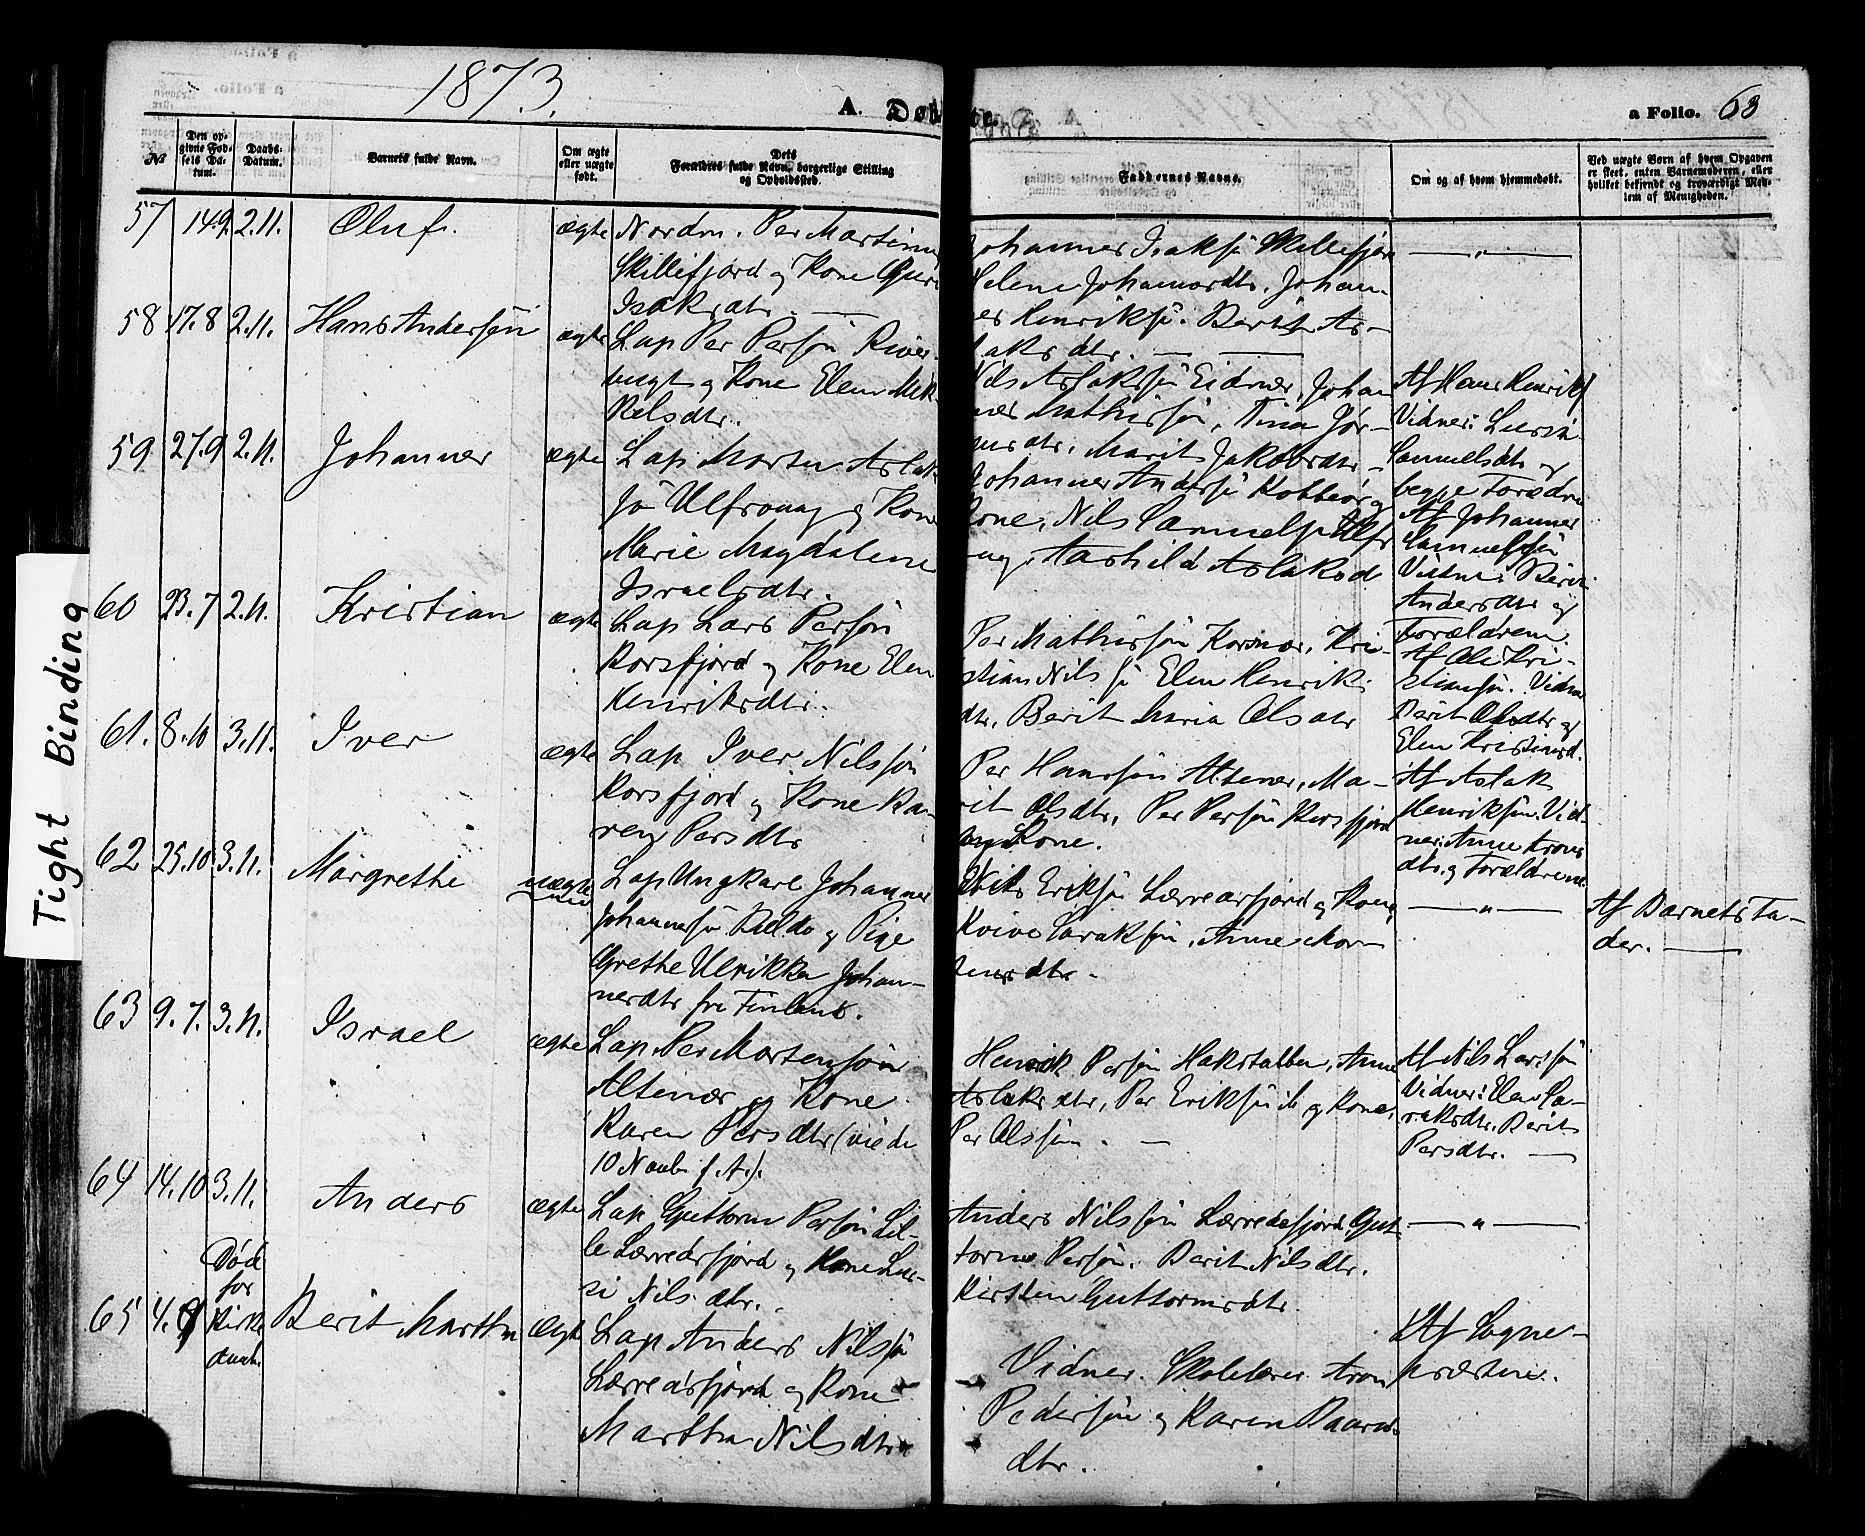 1873.
A. Døbte.
a Folio. 63
№
Den opgivne Fødsels Datum.
Daabs-Datum.
Barnets fulde Navn.
Om ægte eller uægte født.
Dets Forældres fulde Navn, borgerlige Stilling og Opholdssted.
Faddernes Navne.
Om og af hvem hjemmedøbt.
Ved uægte Børn af hvem Opgaven er skeet, enten Barnemoderen, eller hvilket bekjendt og troværdigt Medlem af Menigheden.
Tight Binding
57 14.9. 2.11. Oluf. ægte
Nordm. Per Martinus
Skillefjord og Kone Guri
Isaksdtr.
Johannes Isaksø Skillefjor
Helene Johannesdtr. Johan-
es Henriksø. Berit As-
laksdtr.
58 17.8 2.11. Hans Andersøn ægte
Lap Per Persøn River-
bugt og Kone Elen Mik-
kelsdtr.
Nils Aslaksøn Eidnes, Johan
nes Mathisøn, Tina Jør-
Marit Jakobsdtr
Af Hans Henriks
Vidner:
Samuelsdtr og
begge Forældre
59 27.9 2.11. Johannes ægte
Lap Morten Aslak
sø Ulfsvaag og Kone
Marie Magdalene
Israelsdtr.
Johannes Andersø Kobbeør og
Kone, Nils Samuels Ulfs
aag, Aslaksd
Af Johannes
Samuelsøn
Vidne: Berit
Andersdtr og
Forældrene
60 23.7 2.11. Kristian ægte
Lap Lars Persøn
Korsfjord og Kone Elen
Henriksdtr.
Per Mathisøn Korsnæs, Kri-
stian Nilsø Elen Henriks
dtr, Berit Maria Olsdtr
Af Ole Kri-
stiansø. Vidner
Berit Olsdtr og
Elen Kristiansd.
61. 8.10 3.11. Iver ægte
Lap Iver Nilssøn
Korsfjord og Kone Ka-
ren Persdtr
Per Hansøn Altenes, Ma-
rit Olsdtr, Per Persøn Korsfjord
og Kone.
Af Aslak
Henriksøn. Vid-
ner: Anne Arons
dtr. og Forældrene.
62 25.10 3.11. Margrethe uægte
Lap Ungkarl Johannes
Johannesø og Pige
Grethe Ulrikka Johan-
nesdtr fra Finland.
Nils Eriksøn Lærredsfjord og Kone,
Isaksøn, Anne Mor-
tensdtr.
Af Barnets Fa-
der.
63 9.7. 3.11. Israel ægte
Lap Per Mortensøn
Altenæs og Kone
Karen Persdtr (viede
10 Novbr f. A.).
Henrik Persøn Hakstabben, Anne
Aslaksdtr, Per Eriksøn og Kone,
Per Olssøn.
Af Nils Larssøn
Vidner: Elen Isa-
ksdtr. Berit
Persdtr.
64 14.10 3.11. Anders ægte
Lap Guttorm Persøn Lil-
le Lærredsfjord og Kone Lus-
si Nilsdtr.
Anders Nilssøn Lærredsfjord Gut-
torm Persøn. Berit Nilsdtr.
Kirsten Guttormsdtr.
65 4.9 Død
for
Kirke
daab.
Berit Martha Ægte
Lap Anders Nilssø
Lærredsfjord og Kone
Martha Nilsdtr
Vidner. Skolelærer Aron
Pedersøn og Karen Baards
dtr.
Af Sogne-
præsten.